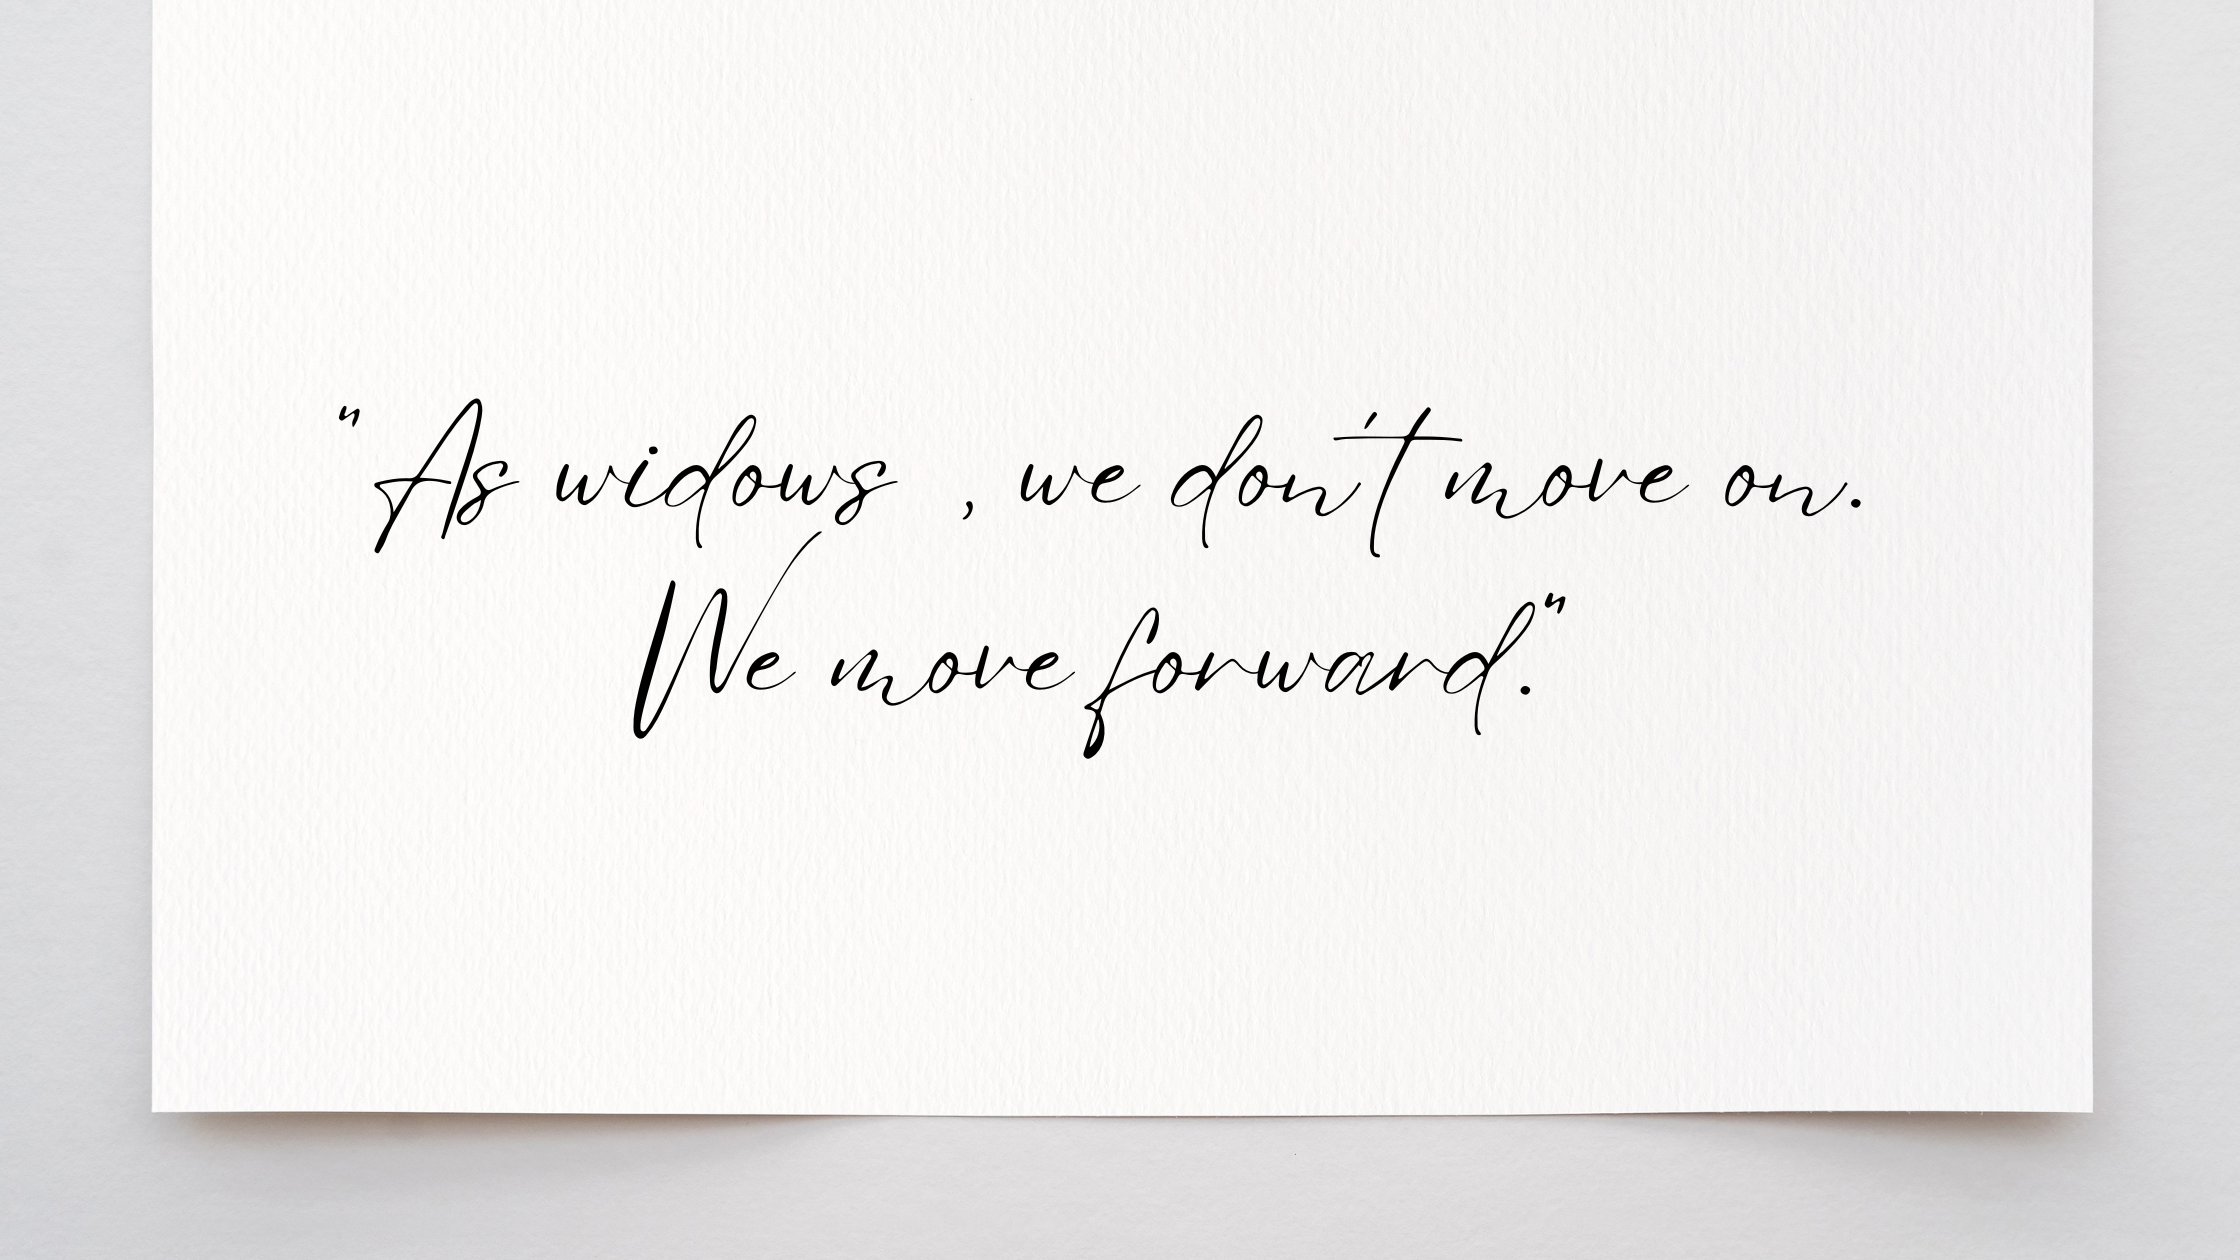 "As widows , we don't move on.
We move forward."